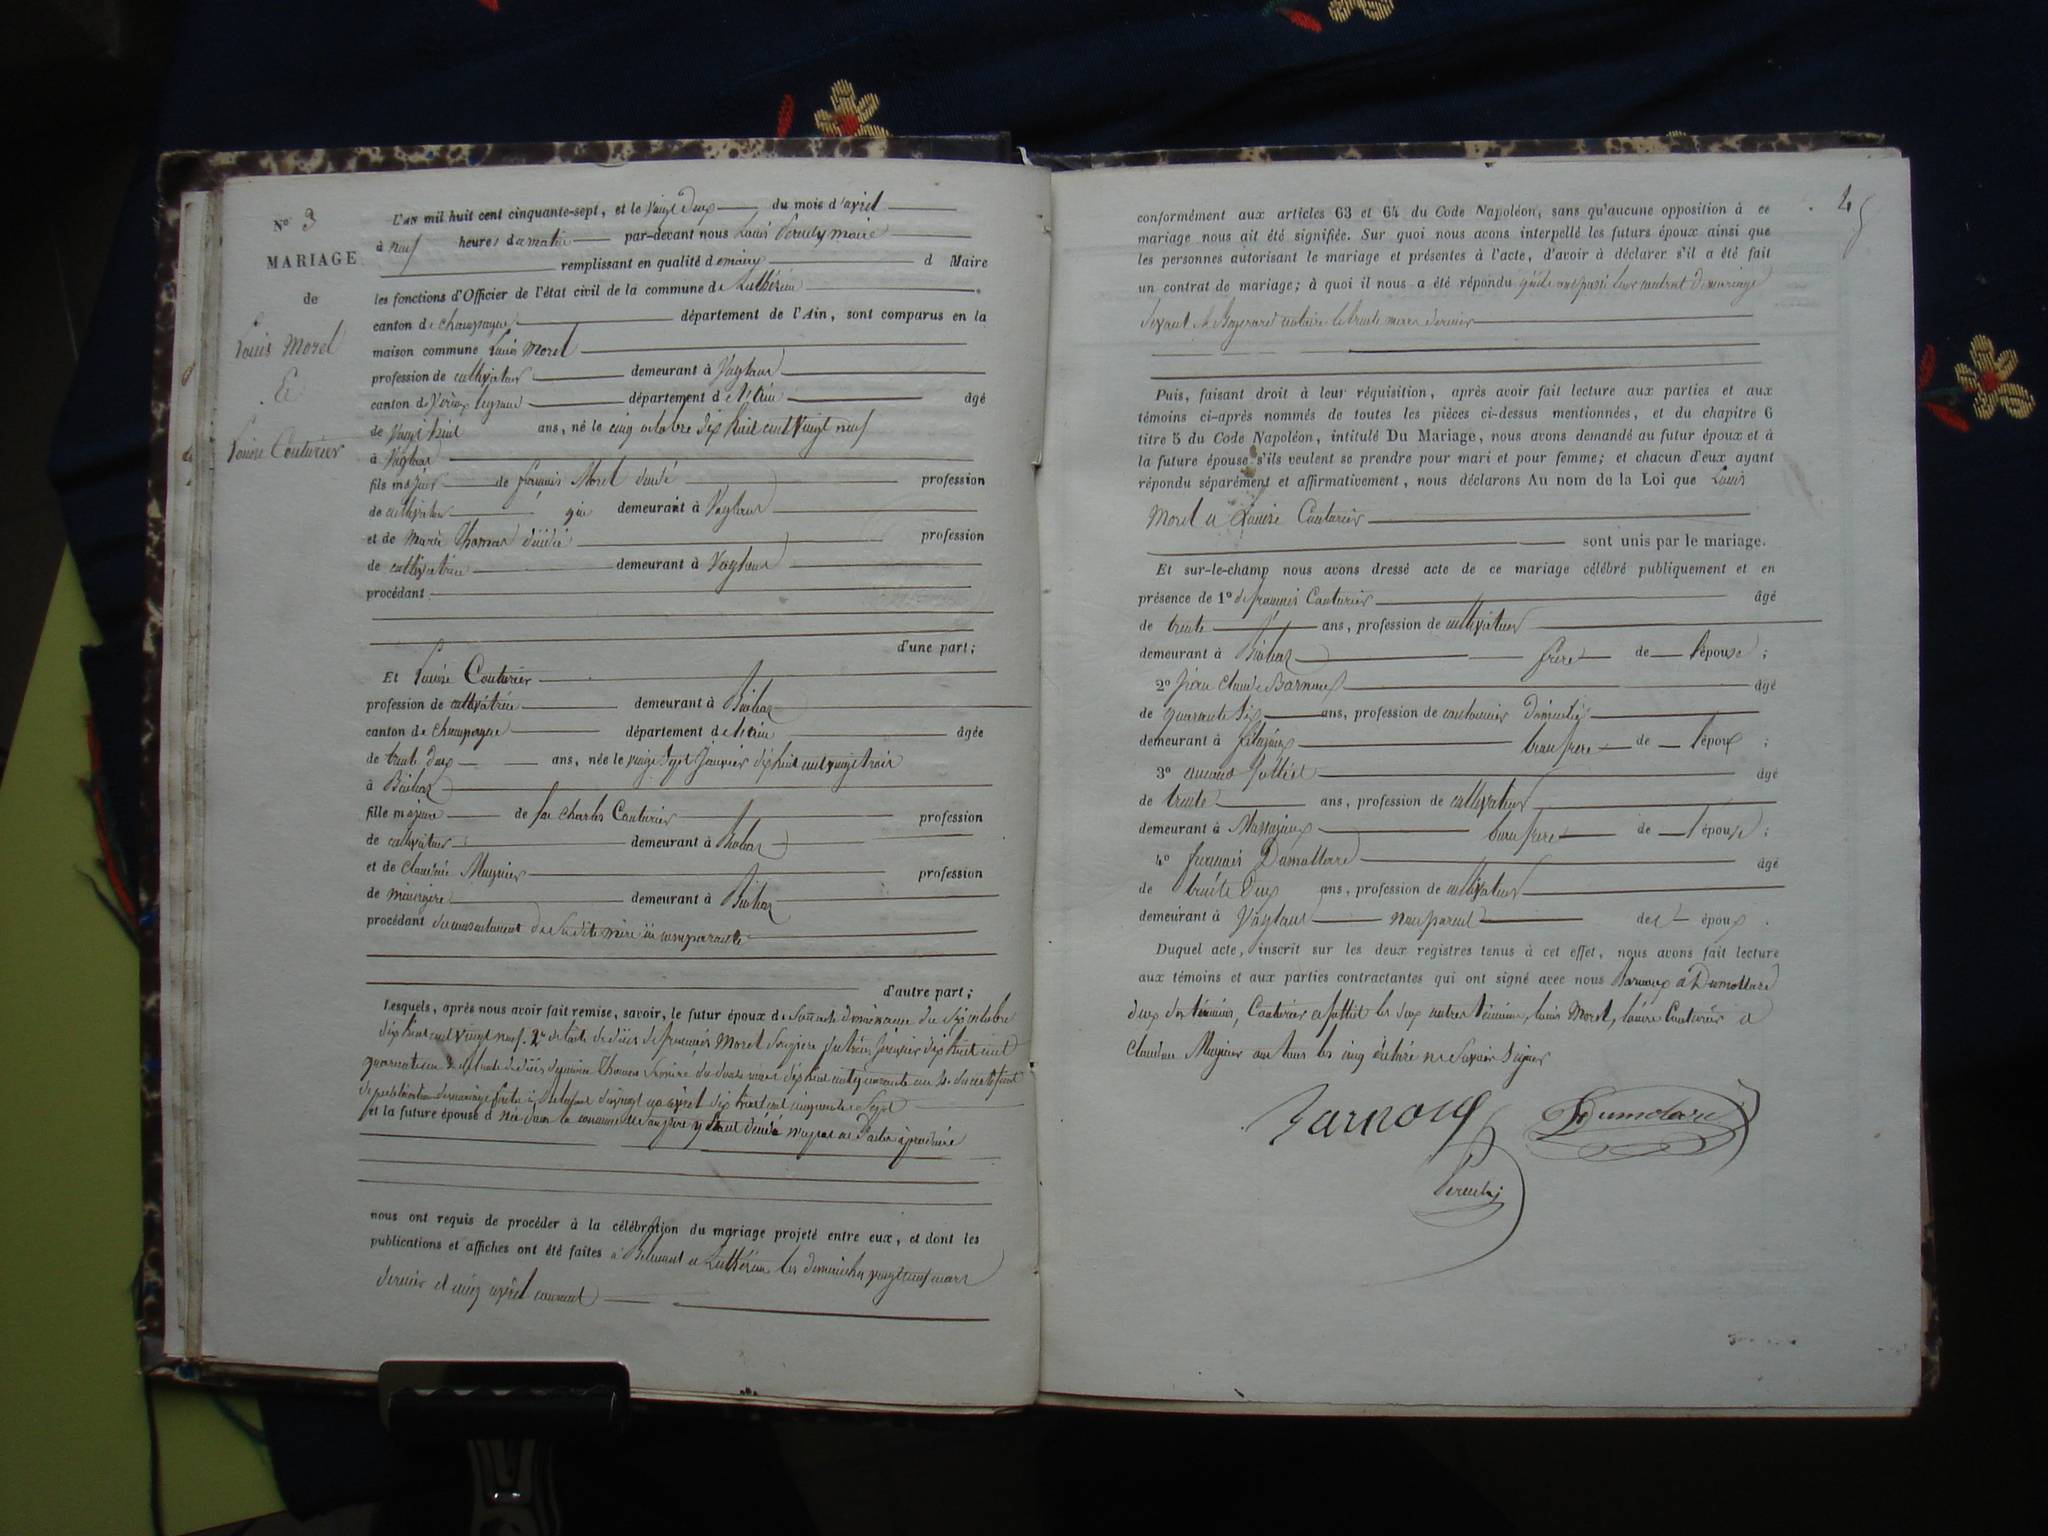 N.º 3
MARIAGE
de
Louis Morel
Et
Louise Couturier
L'AN mil huit cent cinquante-sept, et le vingt deux du mois d'avril
à neuf heures du matin par-devant nous Louis maire
remplissant en qualité de maire d Maire
les fonctions d'Officier de l'état civil de la commune de Luthézieu
canton de champagne département de l'Ain, sont comparus en la
maison commune Louis Morel
profession de cultivateur demeurant à
canton de département de l'ain âgé
de vingt huit ans, né le cinq octobre dix huit cent vingt neuf
à
fils majeur de françois Morel décédé profession
de cultivateur qui demeurant à
et de Marie Thomas décédée profession
de cultivatrice demeurant à
procédant
d'une part;
Et Louise Couturier
profession de cultivatrice demeurant à
canton de champagne département de l'ain âgée
de trente deux ans, née le vingt sept janvier dix huit cent vingt trois
à
fille majeure de feu Charles Couturier profession
de cultivateur demeurant à
et de Claudine Mugnier profession
de ménagère demeurant à
procédant du consentement de sa dite mère ici comparante
d'autre part;
Lesquels, après nous avoir fait remise, savoir, le futur époux de son acte de naissance du six octobre
dix huit cent vingt neuf. 2º de l'acte de décès de françois Morel son père du janvier dix huit cent
quarante un 3º de l'acte de décès de marie Thomas sa mère du douze mars dix huit cent quarante un 4º du certificat
de publication de mariage faite à Belmont du vingt un avril dix huit cent cinquante sept
et la future épouse née dans la commune et son père y étant décédé n'a pas eu d'actes à produire
nous ont requis de procéder à la célébration du mariage projeté entre eux, et dont les
publications et affiches ont été faites à Belmont et Luthézieu les dimanches vingt neuf mars
dernier et cinq avril courant
45
conformément aux articles 63 et 64 du Code Napoléon, sans qu'aucune opposition à ce
mariage nous ait été signifiée. Sur quoi nous avons interpellé les futurs époux ainsi que
les personnes autorisant le mariage et présentes à l'acte, d'avoir à déclarer s'il a été fait
un contrat de mariage; à quoi il nous a été répondu qu'ils ont passé leur contrat de mariage
devant Me notaire le trente mars dernier
Puis, faisant droit à leur réquisition, après avoir fait lecture aux parties et aux
témoins ci-après nommés de toutes les pièces ci-dessus mentionnées, et du chapitre 6
titre 5 du Code Napoléon, intitulé Du Mariage, nous avons demandé au futur époux et à
la future épouse s'ils veulent se prendre pour mari et pour femme; et chacun d'eux ayant
répondu séparément et affirmativement, nous déclarons Au nom de la Loi que Louis
Morel et Louise Couturier
sont unis par le mariage.
Et sur-le-champ nous avons dressé acte de ce mariage célébré publiquement et en
présence de 1º de françois Couturier âgé
de trente ans, profession de cultivateur
demeurant à frère de l'épouse;
2º Jean Claude Barnoux âgé
de quarante six ans, profession de cantonnier
demeurant à beau frère de l'époux;
3º âgé
de trente ans, profession de cultivateur
demeurant à beau frère de l'épouse;
4º françois Dumollard âgé
de trente deux ans, profession de cultivateur
demeurant à non parent des époux.
Duquel acte, inscrit sur les deux registres tenus à cet effet, nous avons fait lecture
aux témoins et aux parties contractantes qui ont signé avec nous Barnoux et Dumollard
deux des témoins, Couturier et les deux autres témoins, Louis Morel, Louise Couturier et
Claudine Mugnier ont tous les cinq déclaré ne savoir signer
Barnoux
Dumolard